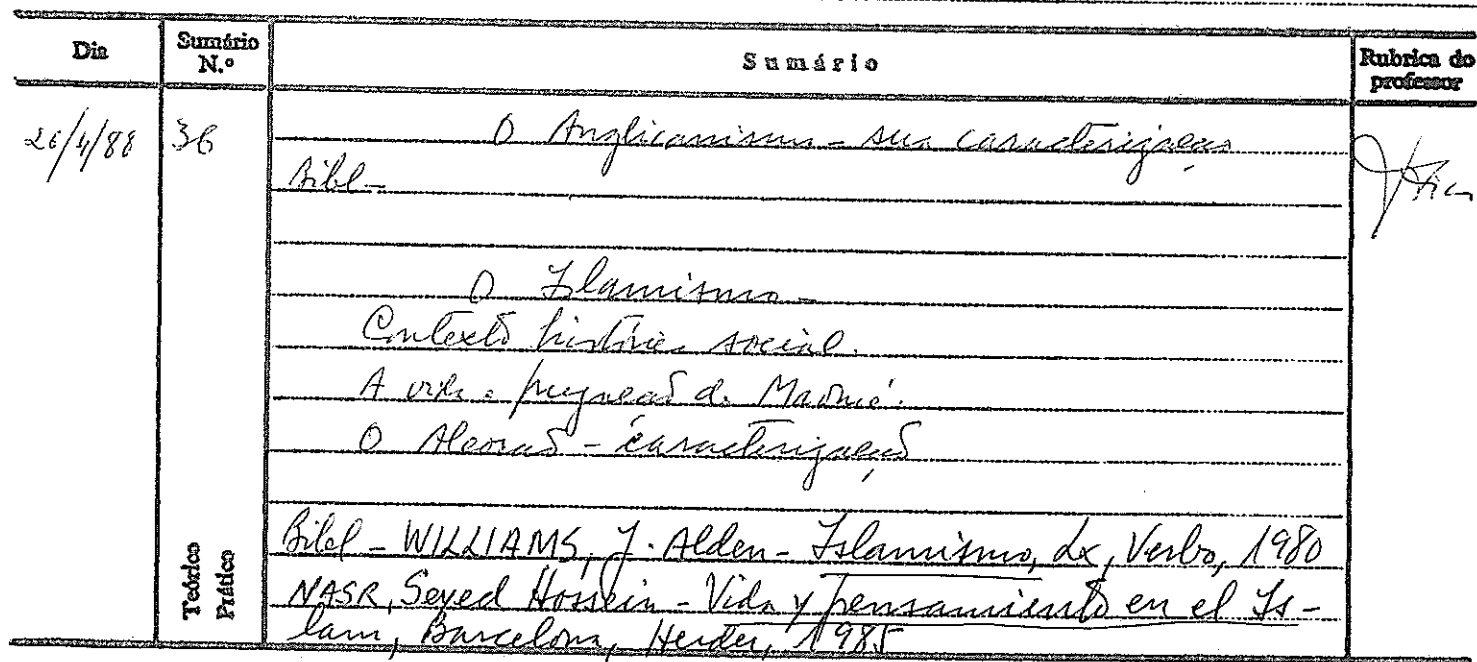 Dia Sumário N.º Sumário Rubrica do professor
26/4/88 36 O Anglicanismo - sua caracterização
Bibl -
O Islamismo -
Contexto histórico social.
A vida e pregação de Maomé.
O Alcorão - caracterização
Bibl - WILLIAMS, J. Alden - Islamismo, Lx, Verbo, 1980
NASR, Seyed Hossein - Vida y pensamiento en el Is-
lam, Barcelona, Herder, 1985
Teórico
Prático